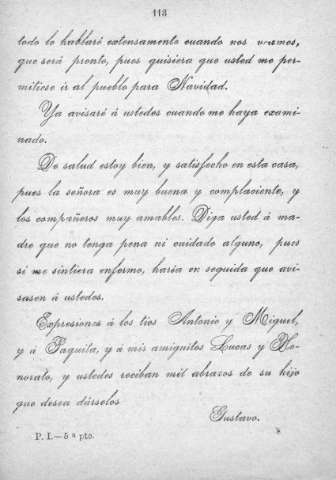 113
todo lo hablaré extensamente cuando nos veamos,
que será pronto, pues quisiera que usted me per-
mitiese ir al pueblo para Navidad.
Ya avisaré á ustedes cuando me haya exami-
nado.
De salud estoy bien, y satisfecho en esta casa,
pues la señora es muy buena y complaciente, y
los compañeros muy amables. Diga usted á ma-
dre que no tenga pena ni cuidado alguno, pues
si me sintiera enfermo, haría en seguida que avi-
sasen á ustedes.
Expresiones á los tíos Antonio y Miguel,
y á Paquita, y á mis amiguitos Lucas y Ho-
norato, y ustedes reciban mil abrazos de su hijo
que desea dárselos
Gustavo.
P. I.—5ª pto.
8